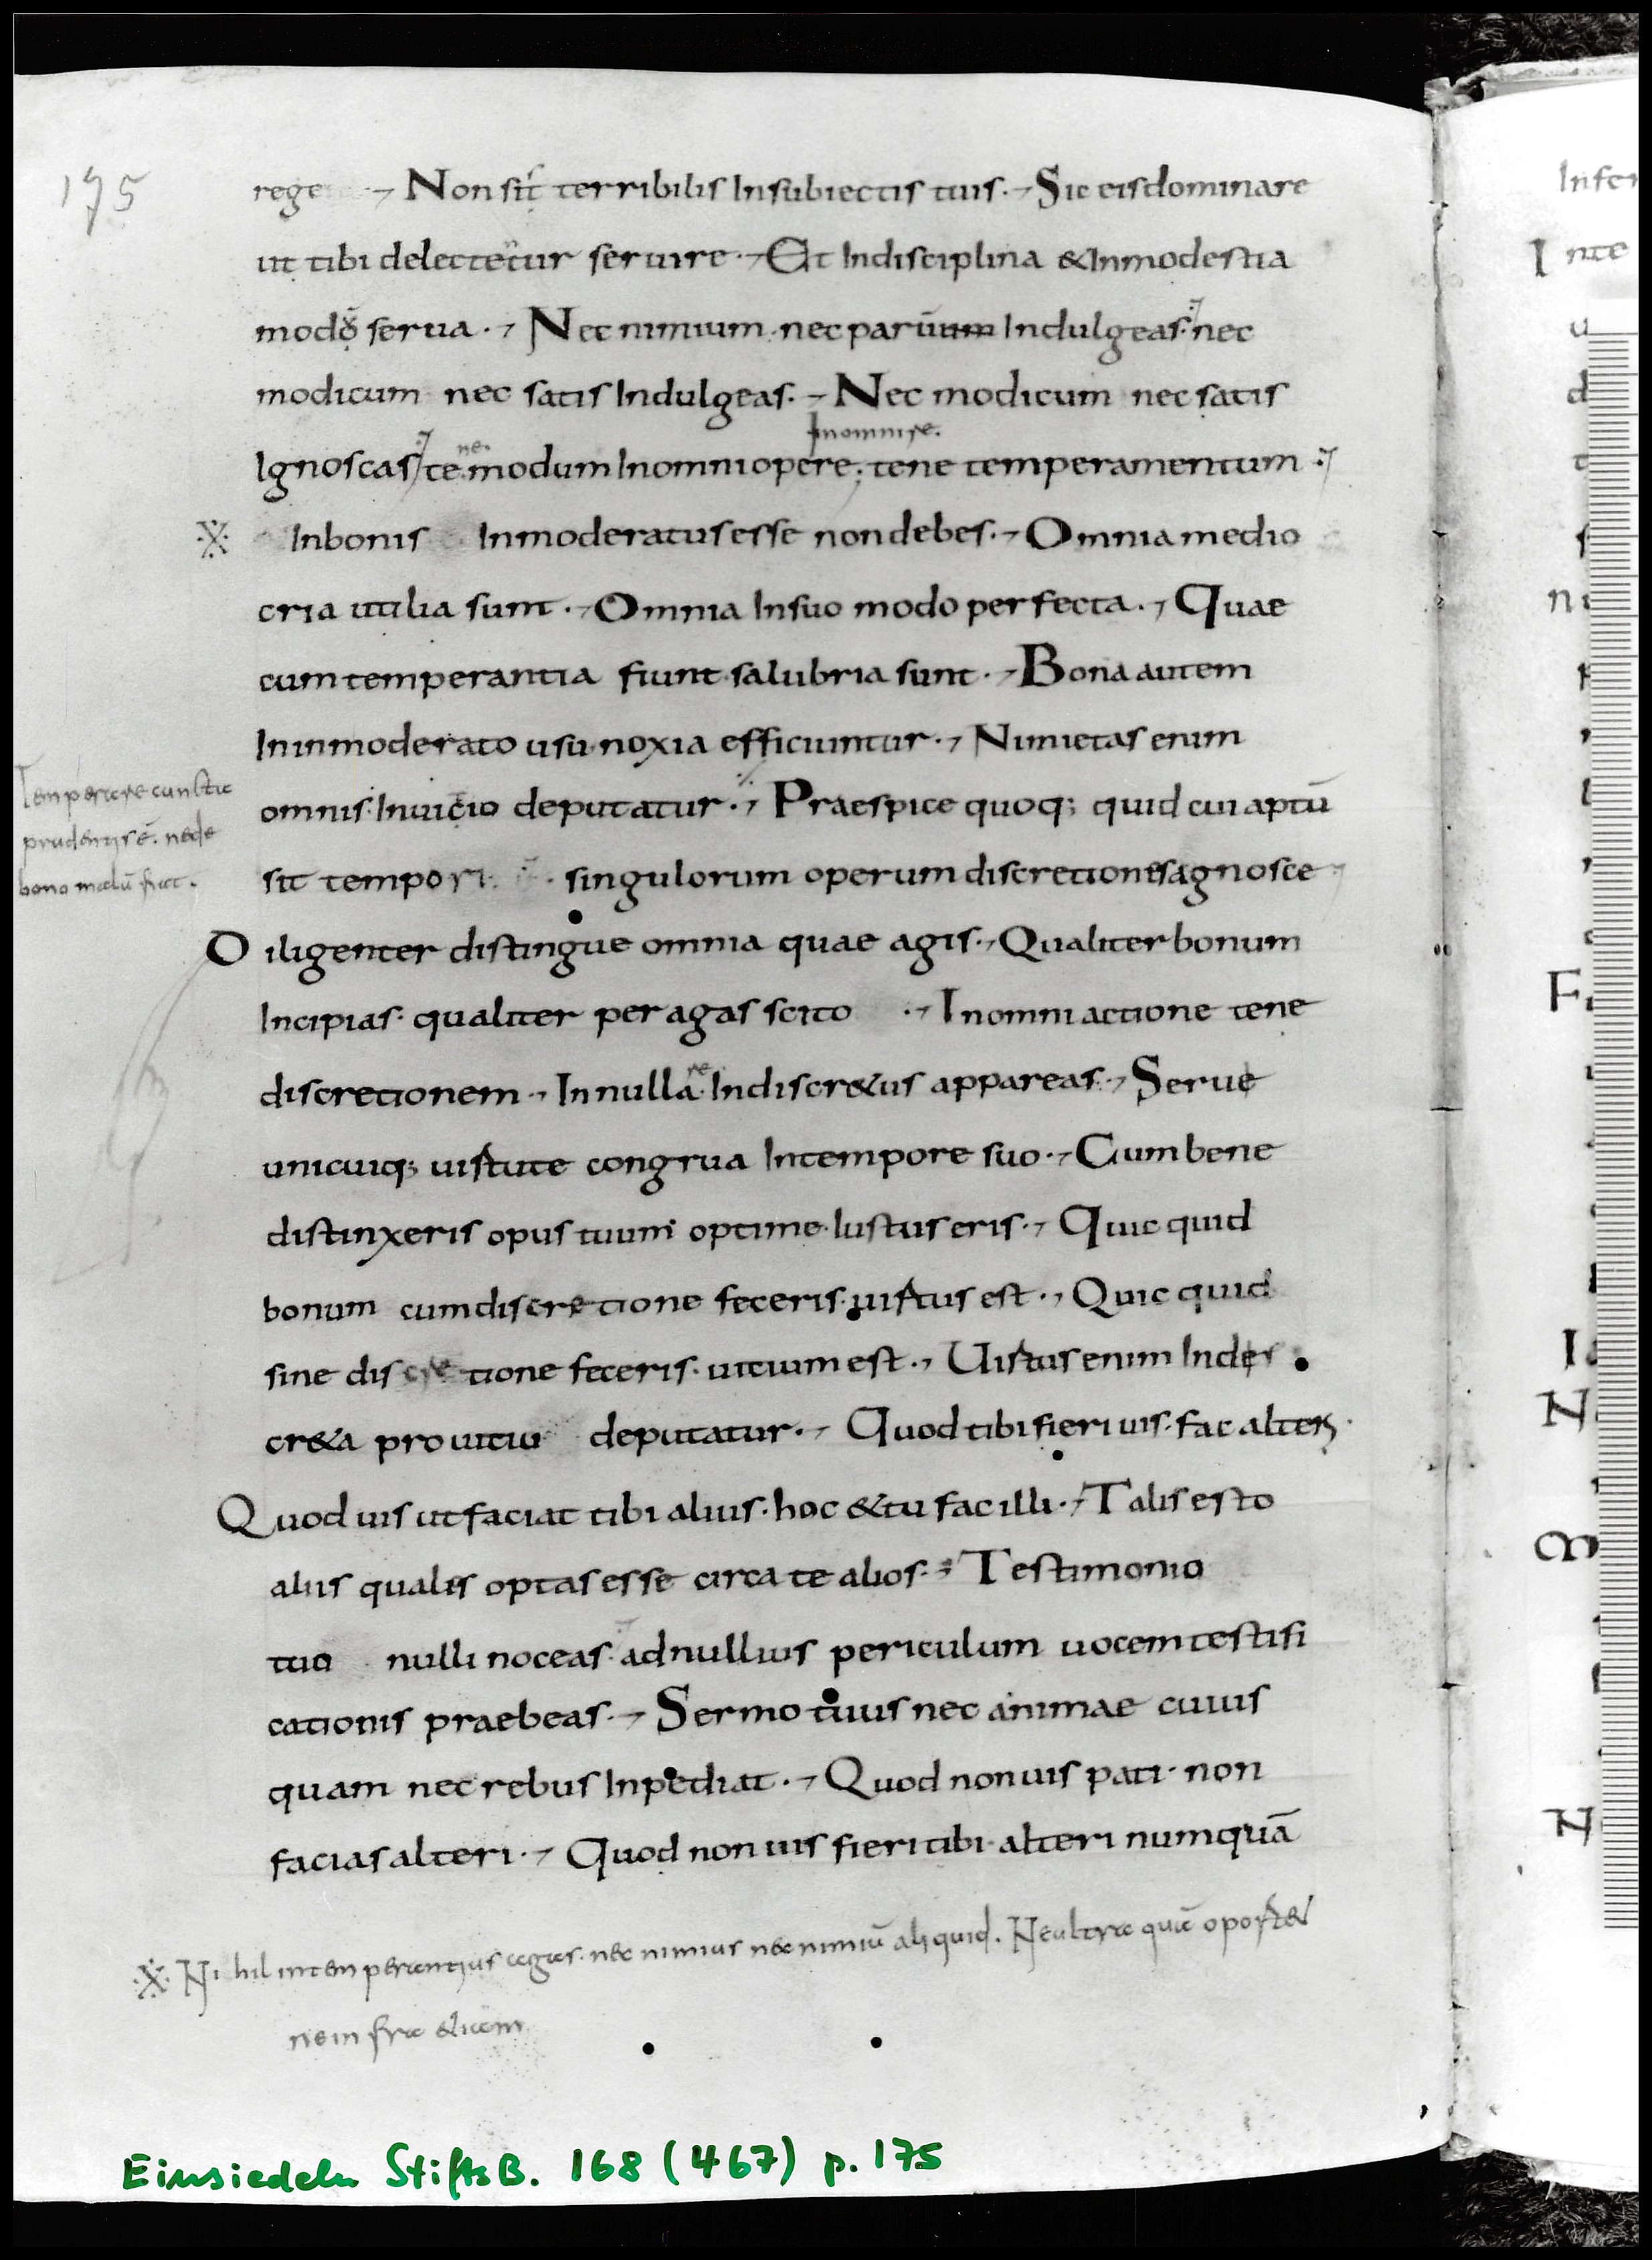 175
rege Non sit terribilis Insubiectis tuis. Sic eis dominare
ut tibi delectetur seruire. Et Indisciplina & Inmodestia
modo serua. Nec nimium. nec parūum Indulgeas. nec
modicum nec satis Indulgeas. Nec modicum nec satis
Inomni re.
Ignoscas tene modum Inomni opere. tene temperamentum
Inbonis Inmoderatus esse non debes. Omnia medio
cria utilia sunt. Omnia Insuo modo perfecta. Quae
cum temperantia fiunt salubria sunt. Bona autem
Ininmoderato usu noxia efficiuntur. Nimietas enim
omnis Inuicio deputatur. Praespice quoq; quid cui aptū
sit tempori singulorum operum discretiones agnosce
Temperare cuncta
prudentis ē. ne de
bono malū fiat.
Diligenter distingue omnia quae agis. Qualiter bonum
Incipias. qualiter peragas scito. Inomni actione tene
discretionem. In nulla re Indiscr&us appareas. Serue
unicuiq; uirtute congrua Intempore suo. Cum bene
distinxeris opus tuum optime. Iustus eris. Quic quid
bonum cum discretione feceris. uirtus est. Quic quid
sine discretione feceris. uitium est. Uirtus enim Indis
cr&a pro uitiu deputatur. Quod tibi fieri uis. fac alteri.
Quod uis ut faciat tibi alius. hoc & tu fac illi. Talis esto
aliis qualis optas esse circa te alios. Testimonio
tuo nulli noceas. ad nullius periculum uocem testifi
cationis praebeas. Sermo tuus nec animae cuius
quam nec rebus Inpediat. Quod non uis pati. non
facias alteri. Quod non uis fieri tibi. alteri numquā
Nihil intemperantius agas. nec minus nec nimiū aliquid. Ne ultra quā oport&
ne infra &iam
Einsiedeln StiftsB. 168 (467) p. 175